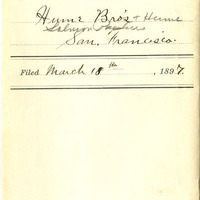 Hume Bro's & Hume
Salmon Packers
San Francisco.
Filed March 18th, 1897.